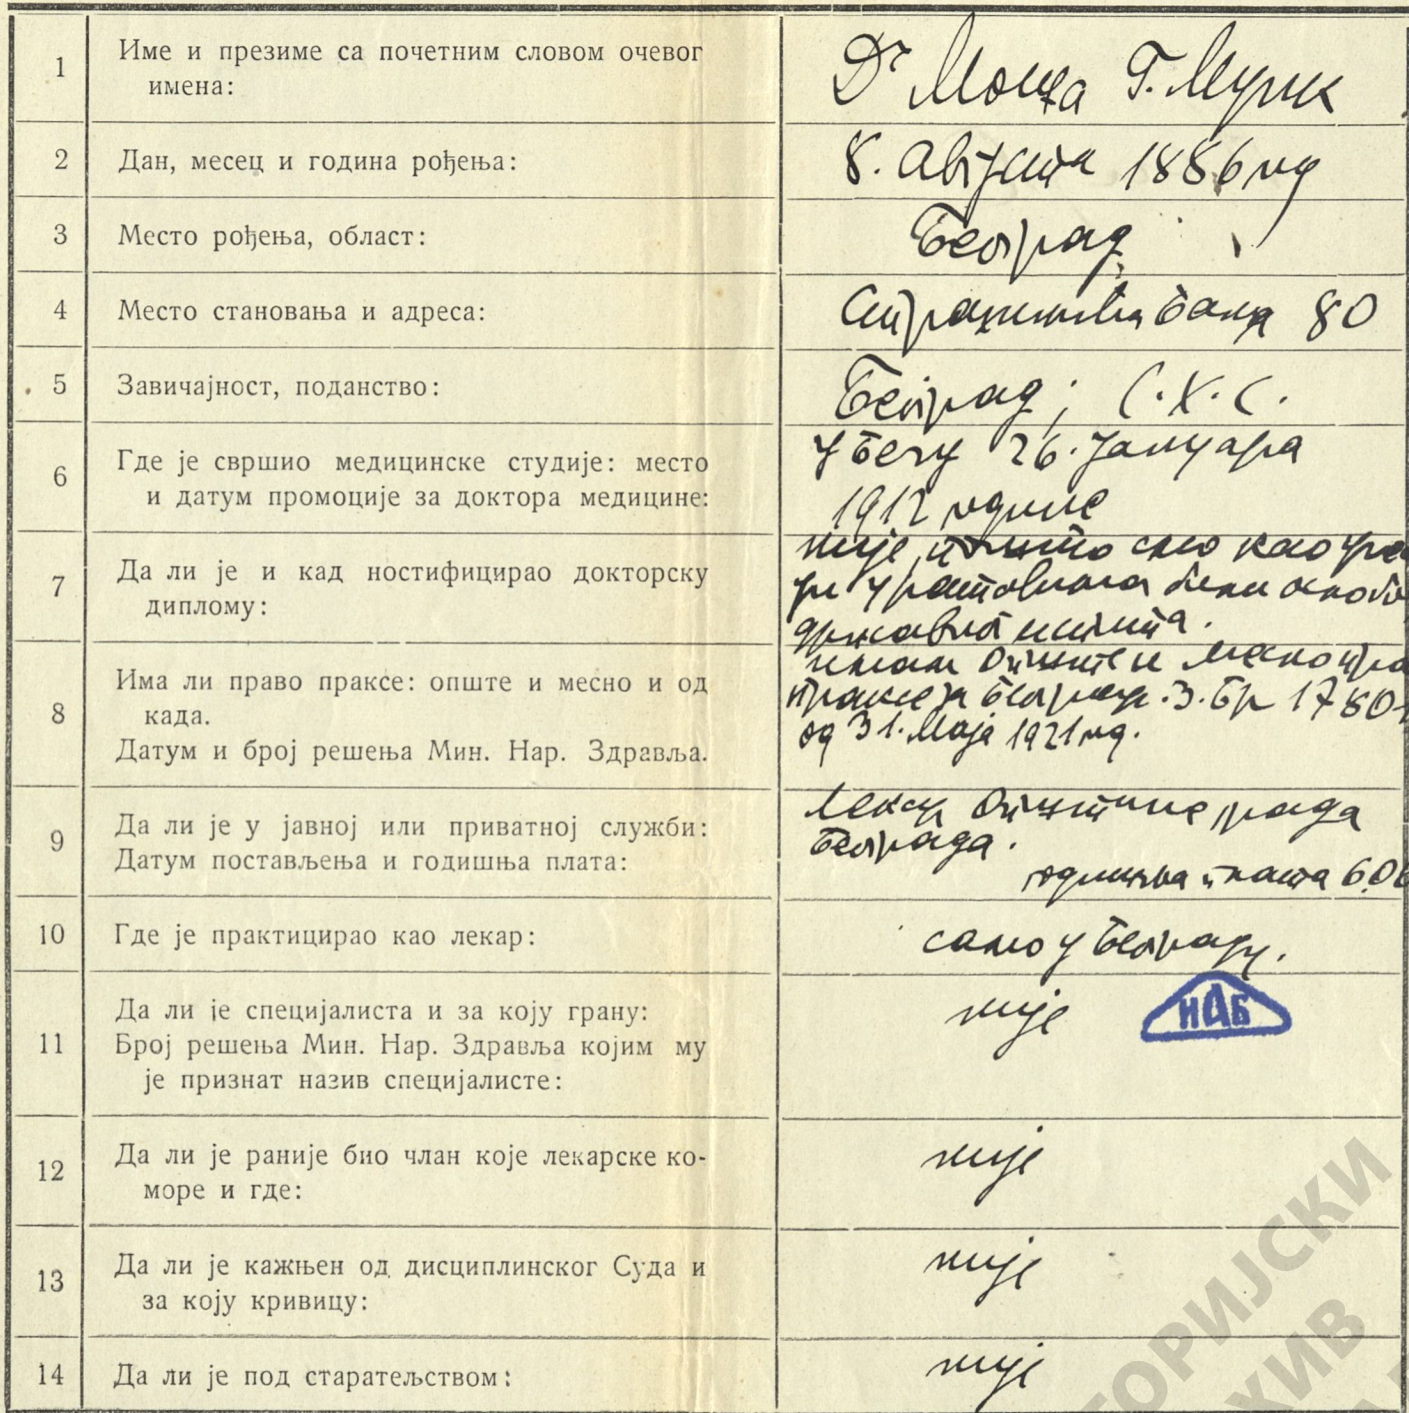 1 Име и презиме са почетним словом очевог
имена:
Dr Моша Г. Мурик
2 Дан, месец и година рођења:
8. августа 1886 год
3 Место рођења, област:
Београд
4 Место становања и адреса:
Страхинића Бана 80
5 Завичајност, поданство:
Београд; С.Х.С.
6 Где је свршио медицинске студије: место
и датум промоције за доктора медицине:
у Бечу 26. Јануара
1912 године
7 Да ли је и кад ностифицирао докторску
диплому:
није, пошто смо као
државног испита.
8 Има ли право праксе: опште и месно и од
када.
Датум и број решења Мин. Нар. Здравља.
имам опште и место
праксе у Београду. З. Бр 1780
од 31. Маја 1921 год.
9 Да ли је у јавној или приватној служби:
Датум постављења и годишња плата:
лекар Општине града
Београда.
годишња плата 6.0
10 Где је практицирао као лекар:
само у Београду.
11 Да ли је специјалиста и за коју грану:
Број решења Мин. Нар. Здравља којим му
је признат назив специјалисте:
није
ИАБ
12 Да ли је раније био члан које лекарске ко-
море и где:
није
13 Да ли је кажњен од дисциплинског Суда и
за коју кривицу:
није
14 Да ли је под старатељством:
није
ТОРИЈСКИ
ХИВ